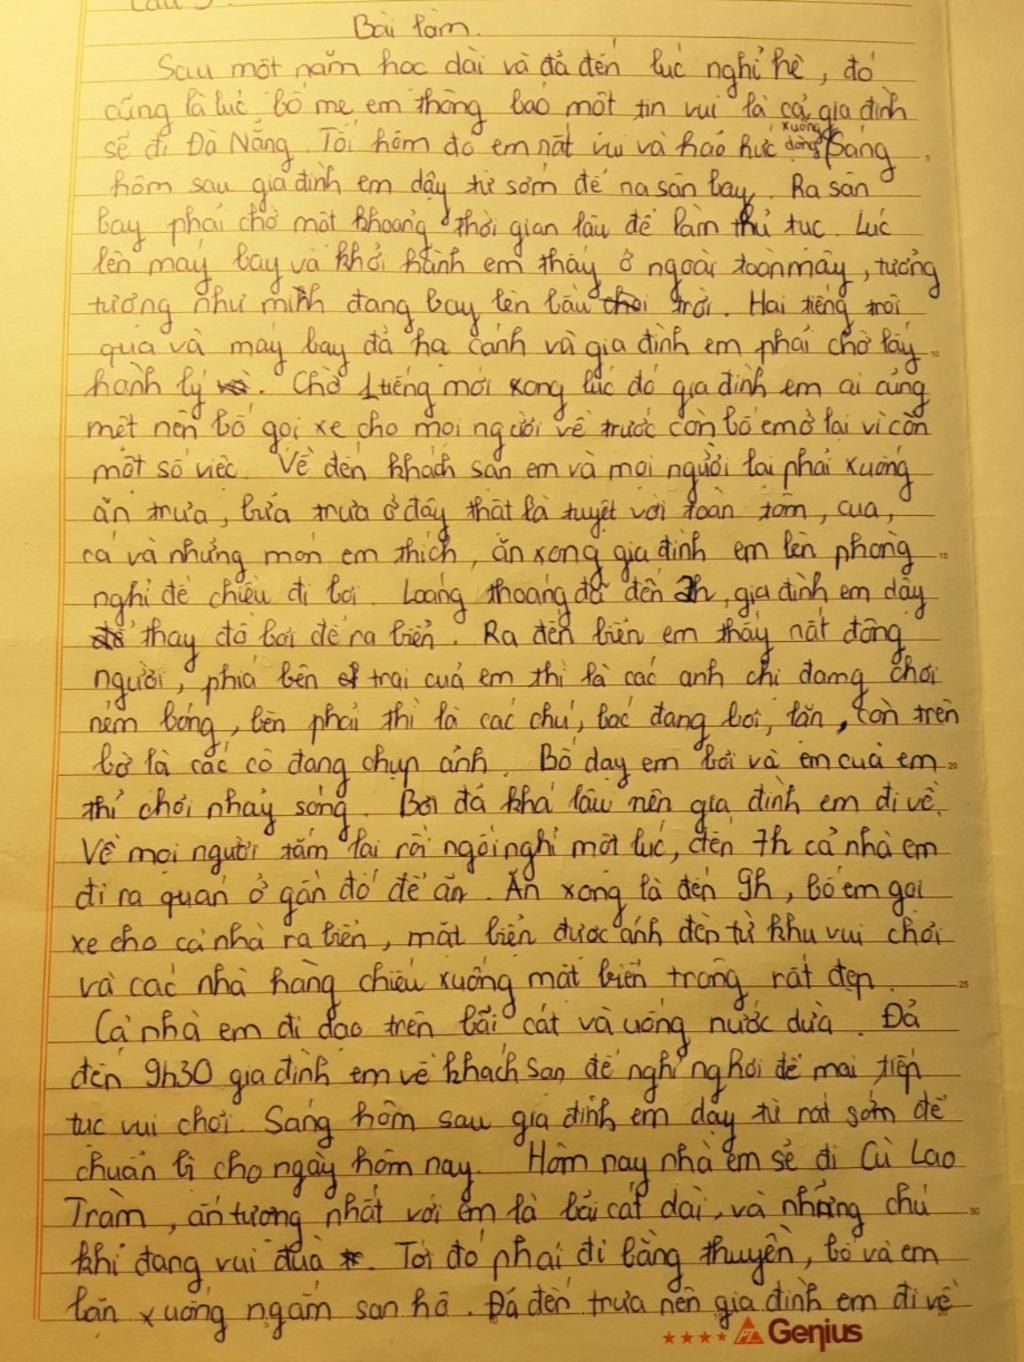 Câu 5
Bài làm.
Sau một năm học dài và đã đến lúc nghỉ hè, đó
cũng là lúc bố mẹ em thông báo một tin vui là cả gia đình
sẽ đi Đà Nẵng. Tối hôm đó em rất vui và háo hức xuống dòng Sáng
hôm sau gia đình em dậy từ sớm để na sân bay. Ra sân
bay phải chờ một khoảng thời gian lâu để làm thủ tục. Lúc
lên máy bay và khởi hành em thấy ở ngoài toàn mây, tưởng
tượng như mình đang bay lên bầu trời. Hai tiếng trôi
qua và máy bay đã hạ cánh và gia đình em phải chờ lấy
hành lý. Chờ 1 tiếng mới xong lúc đó gia đình em ai cũng
mệt nên bố gọi xe cho mọi người về trước còn bố em ở lại vì còn
một số việc. Về đến khách sạn em và mọi người lại phải xuống
ăn trưa, bữa trưa ở đây thật là tuyệt vời toàn tôm, cua,
cá và những món em thích, ăn xong gia đình em lên phòng
nghỉ để chiều đi bơi. Loáng thoáng đã đến 2h, gia đình em dậy
thay đồ bơi để ra biển. Ra đến biển em thấy nất đông
người, phía bên trái của em thì là các anh chị đang chơi
ném bóng, bên phải thì là các chú, bác đang bơi, lặn, còn trên
bờ là các cô đang chụp ảnh. Bố dạy em bơi và em của em
thì chơi nhảy sóng. Bơi đã khá lâu nên gia đình em đi về.
Về mọi người tắm lại rồi ngồi nghỉ một lúc, đến 7h cả nhà em
đi ra quán ở gần đó để ăn. Ăn xong là đến 9h, bố em gọi
xe cho cả nhà ra biển, mặt biển được ánh đèn từ khu vui chơi
và các nhà hàng chiếu xuống mặt biển trông rất đẹp.
Cả nhà em đi dạo trên bãi cát và uống nước dừa. Đã
đến 9h30 gia đình em về khách sạn để nghỉ nghơi để mai tiếp
tục vui chơi. Sáng hôm sau gia đình em dậy từ rất sớm để
chuẩn bị cho ngày hôm nay. Hôm nay nhà em sẽ đi Cù Lao
Tràm, ấn tượng nhất với em là bãi cát dài, và những chú
khỉ đang vui đùa. Tới đó phải đi bằng thuyền, bố và em
lặn xuống ngắm san hô. Đã đến trưa nên gia đình em đi về
Genius